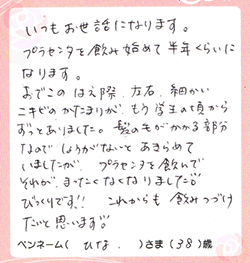 いつもお世話になります。
プラセンタを飲み始めて半年くらいに
なります。
おでこのはえ際、左右、細かい
ニキビのかたまりが、もう学生の頃から
ずっとありました。髪の毛がかかる部分
なのでしょうがないとあきらめて
いましたが、プラセンタを飲んで
それが、まったくなくなりました!!
びっくりです!! これからも飲みつづけ
たいと思います!!
ペンネーム( ひな. )さま(38)歳